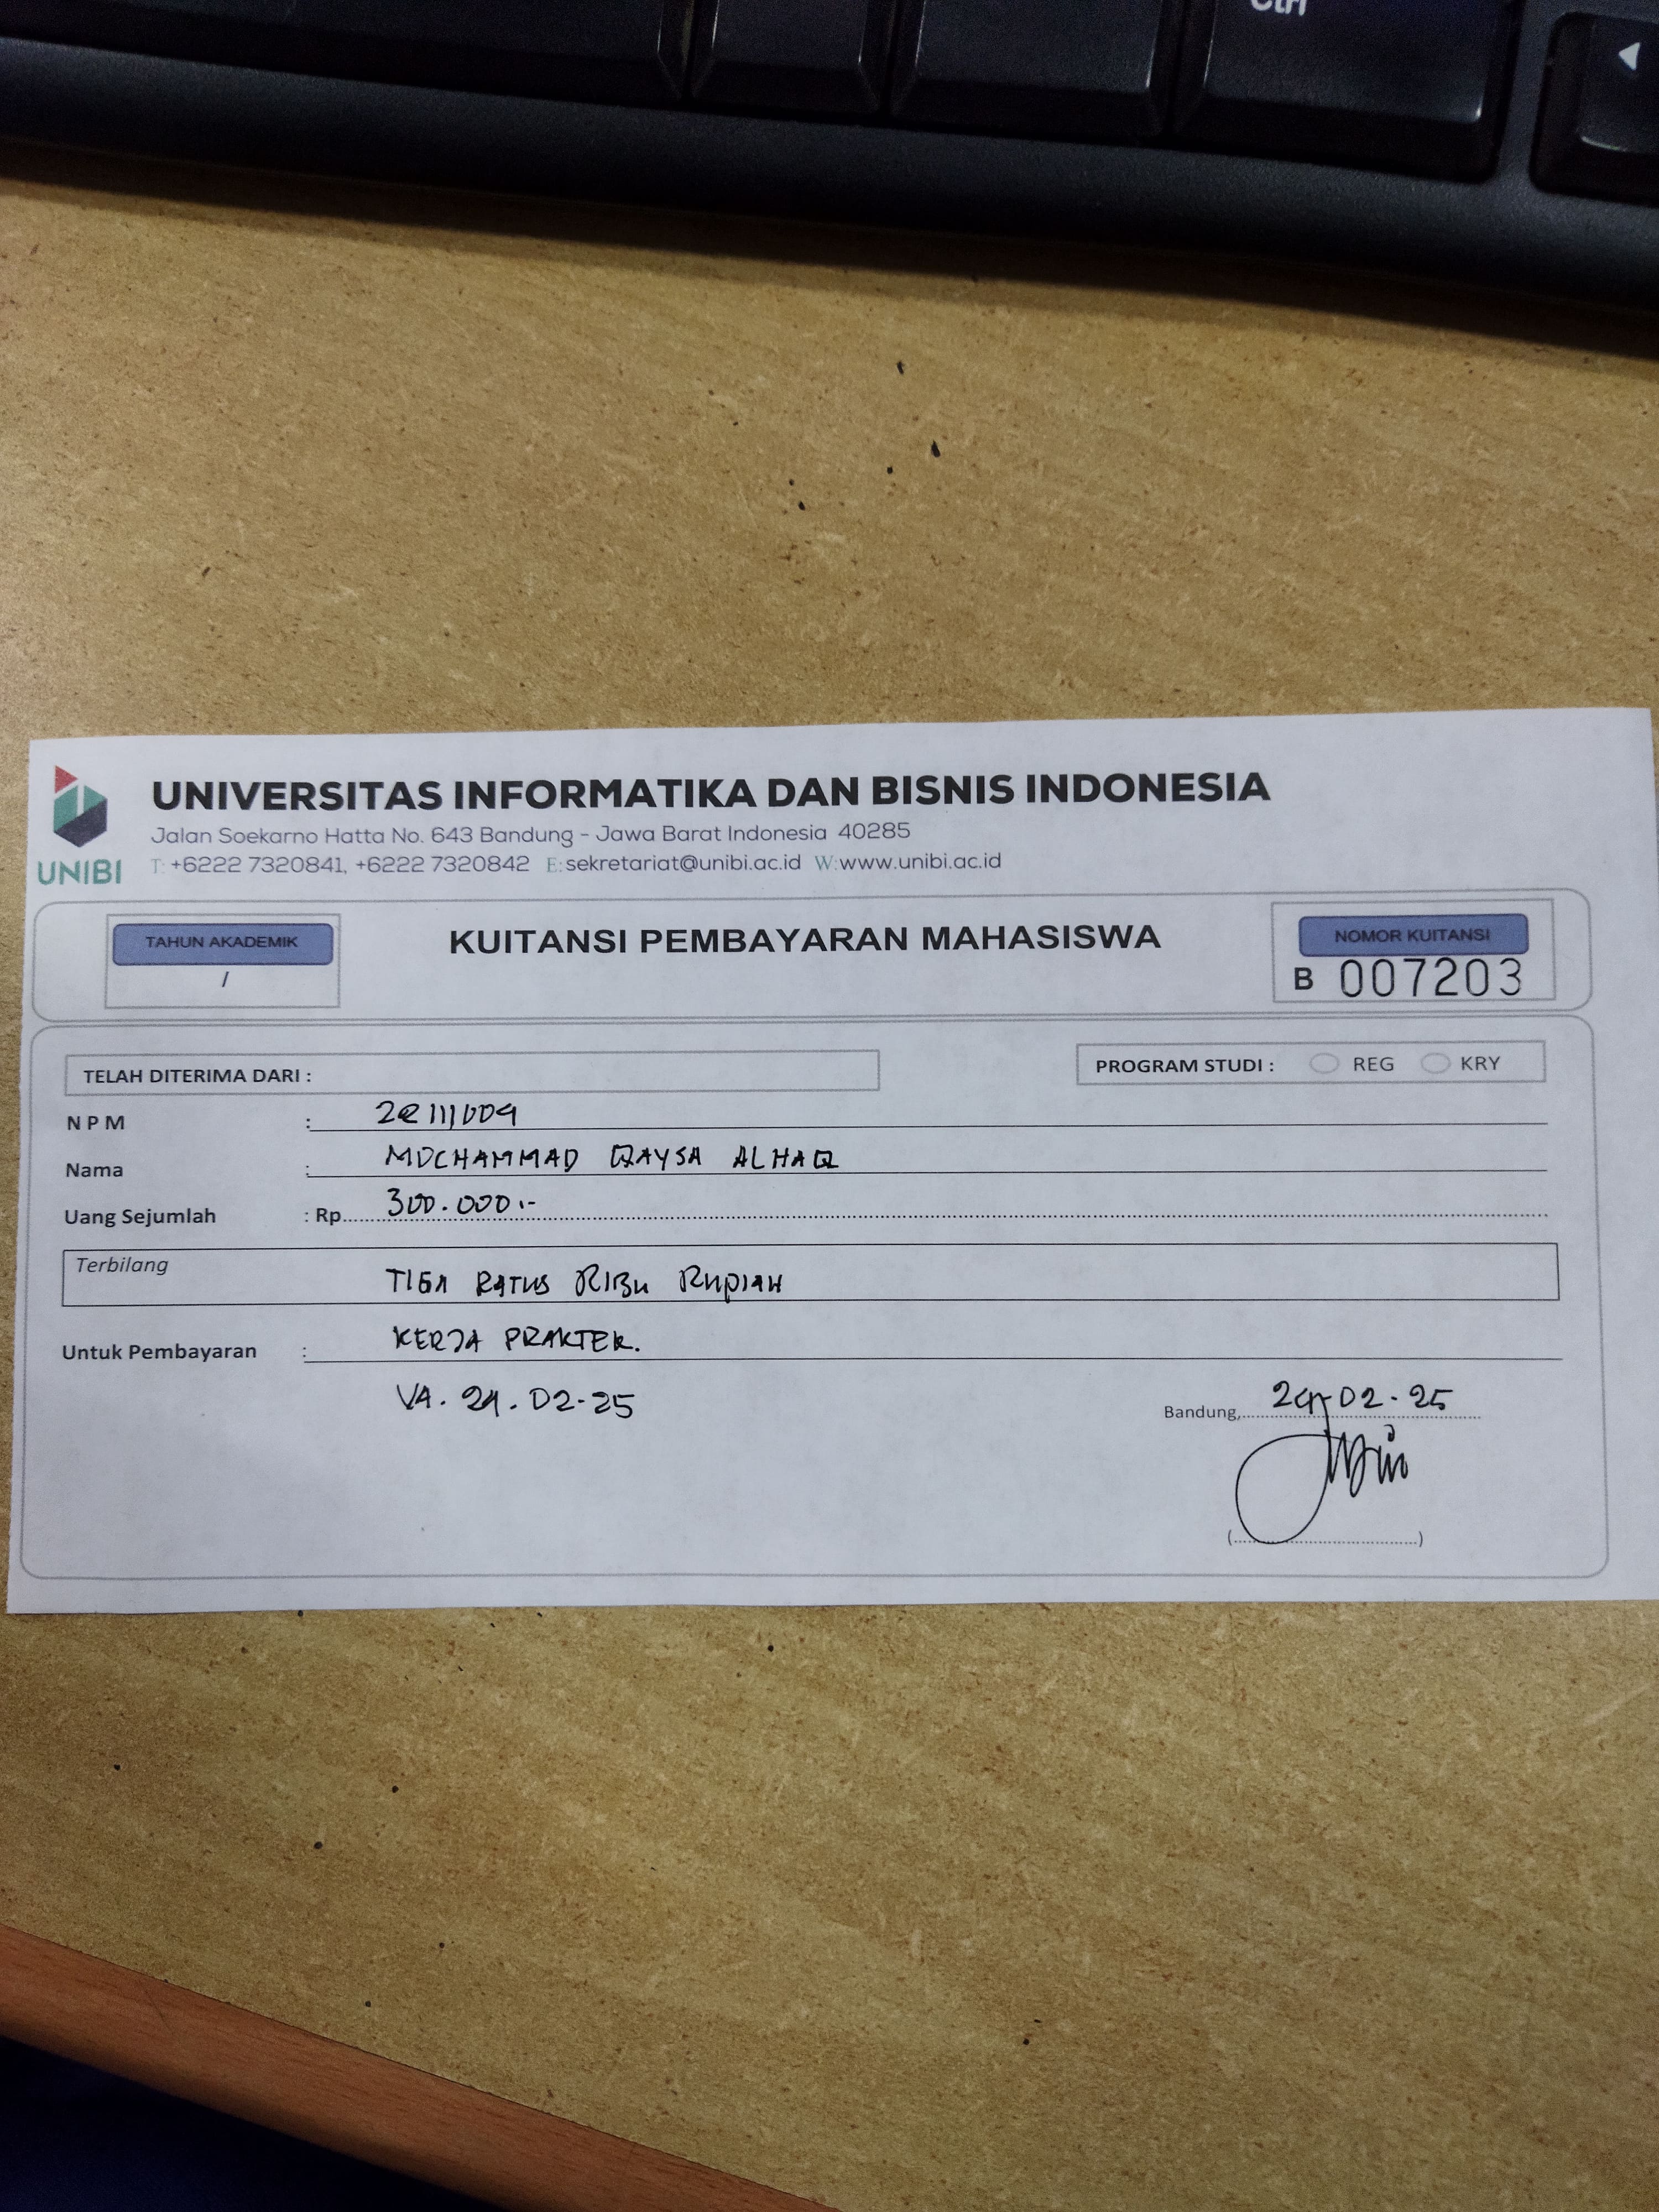 Ctrl
UNIVERSITAS INFORMATIKA DAN BISNIS INDONESIA
Jalan Soekarno Hatta No. 643 Bandung - Jawa Barat Indonesia 40285
UNIBI
T: +6222 7320841, +6222 7320842 E: sekretariat@unibi.ac.id W: www.unibi.ac.id
TAHUN AKADEMIK
/
KUITANSI PEMBAYARAN MAHASISWA
NOMOR KUITANSI
B 007203
TELAH DITERIMA DARI :
PROGRAM STUDI : REG KRY
N P M :
Nama : MOCHAMMAD QAYSA ALHAQ
Uang Sejumlah : Rp. 300.000.-
Terbilang
TIGA RATUS RIBU RUPIAH
Untuk Pembayaran : KERJA PRAKTEK.
VA. 24.02-25
Bandung, 24-02-25